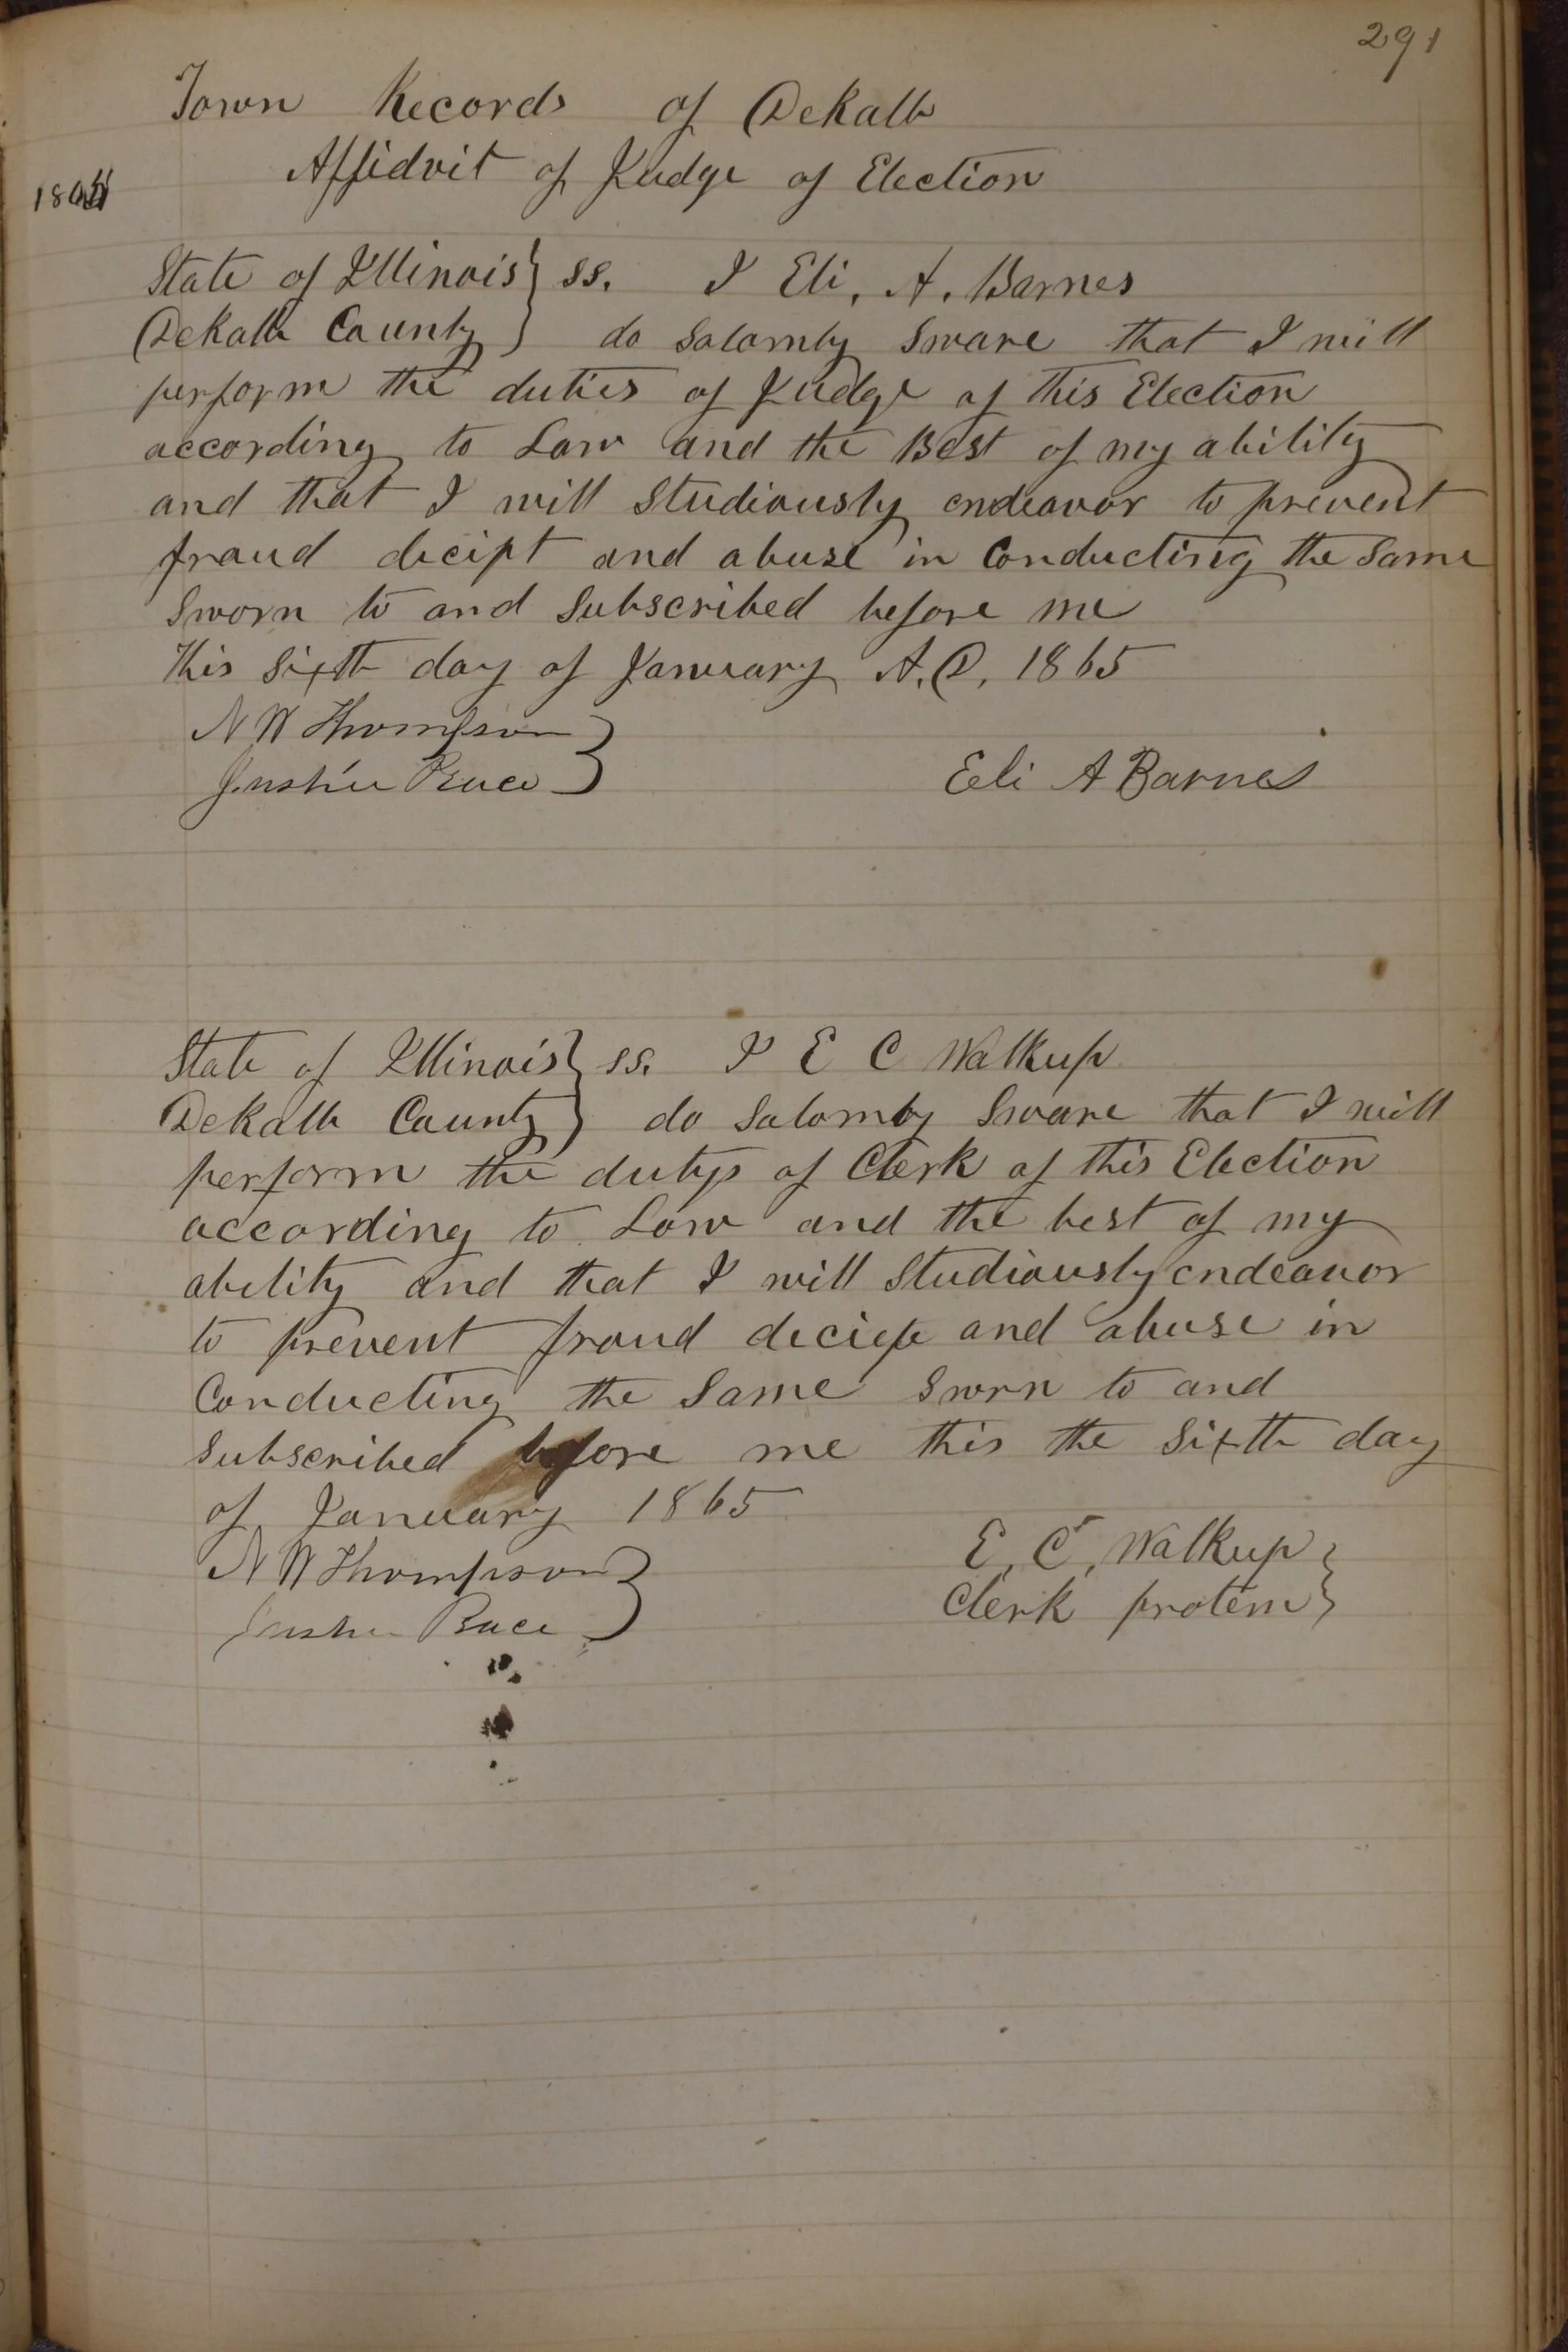 291
Town Records of Dekalb
Affidvit of Judge of Election
State of Illinois } ss. I Eli, A. Barnes
Dekalb County } do Salomly Sware that I will
perform the duties of Judge of this Election
according to Law and the Best of my ability
and that I will Studiously endeavor to prevent
fraud decipt and abuse in Conducting the Same
Sworn to and Subscribed before me
this Sixth day of January A.D. 1865
N W Thompson }
Justice Peace }
Eli A Barnes
State of Illinois } ss. I E C Walkup
Dekalb County } do Salomly Sware that I will
perform the dutys of Clerk of this Election
according to Law and the best of my
ability and that I will Studiously endeavor
to prevent fraud and abuse in
Conducting the Same Sworn to and
Subscribed before me this the Sixth day
of January 1865
N W Thompson }
Justice Peace }
E. C. Walkup }
Clerk protem }